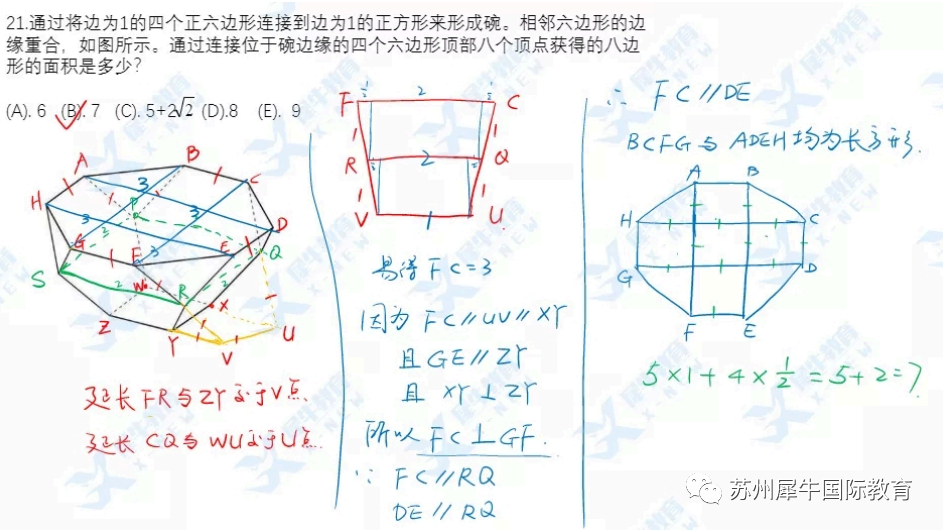 21.通过将边为1的四个正六边形连接到边为1的正方形来形成碗。相邻六边形的边
缘重合，如图所示。通过连接位于碗边缘的四个六边形顶部八个顶点获得的八边
形的面积是多少?
(A). 6 (B). 7 (C). 5+2√2 (D).8 (E). 9
A
B
C
H
3
3
P
D
G
3
2
F
3
E
Q
S
2
W
R
2
X
Z
Y
V
U
延长FR与ZY交于V点.
延长CQ与WU交于U点.
F
1/2
2
1/2
C
1
1
R
2
Q
1
1
V
1
U
易得 FC=3
因为 FC//UV//XY
且 GE//ZY
且 XY⊥ZY
所以 FC⊥GF.
∵ FC//RQ
DE//RQ
∴ FC//DE
BCFG与ADEH均为长方形.
A B
H C
G D
F E
5×1+4×1/2=5+2=7
苏州犀牛国际教育
犀牛教育
X-NEW